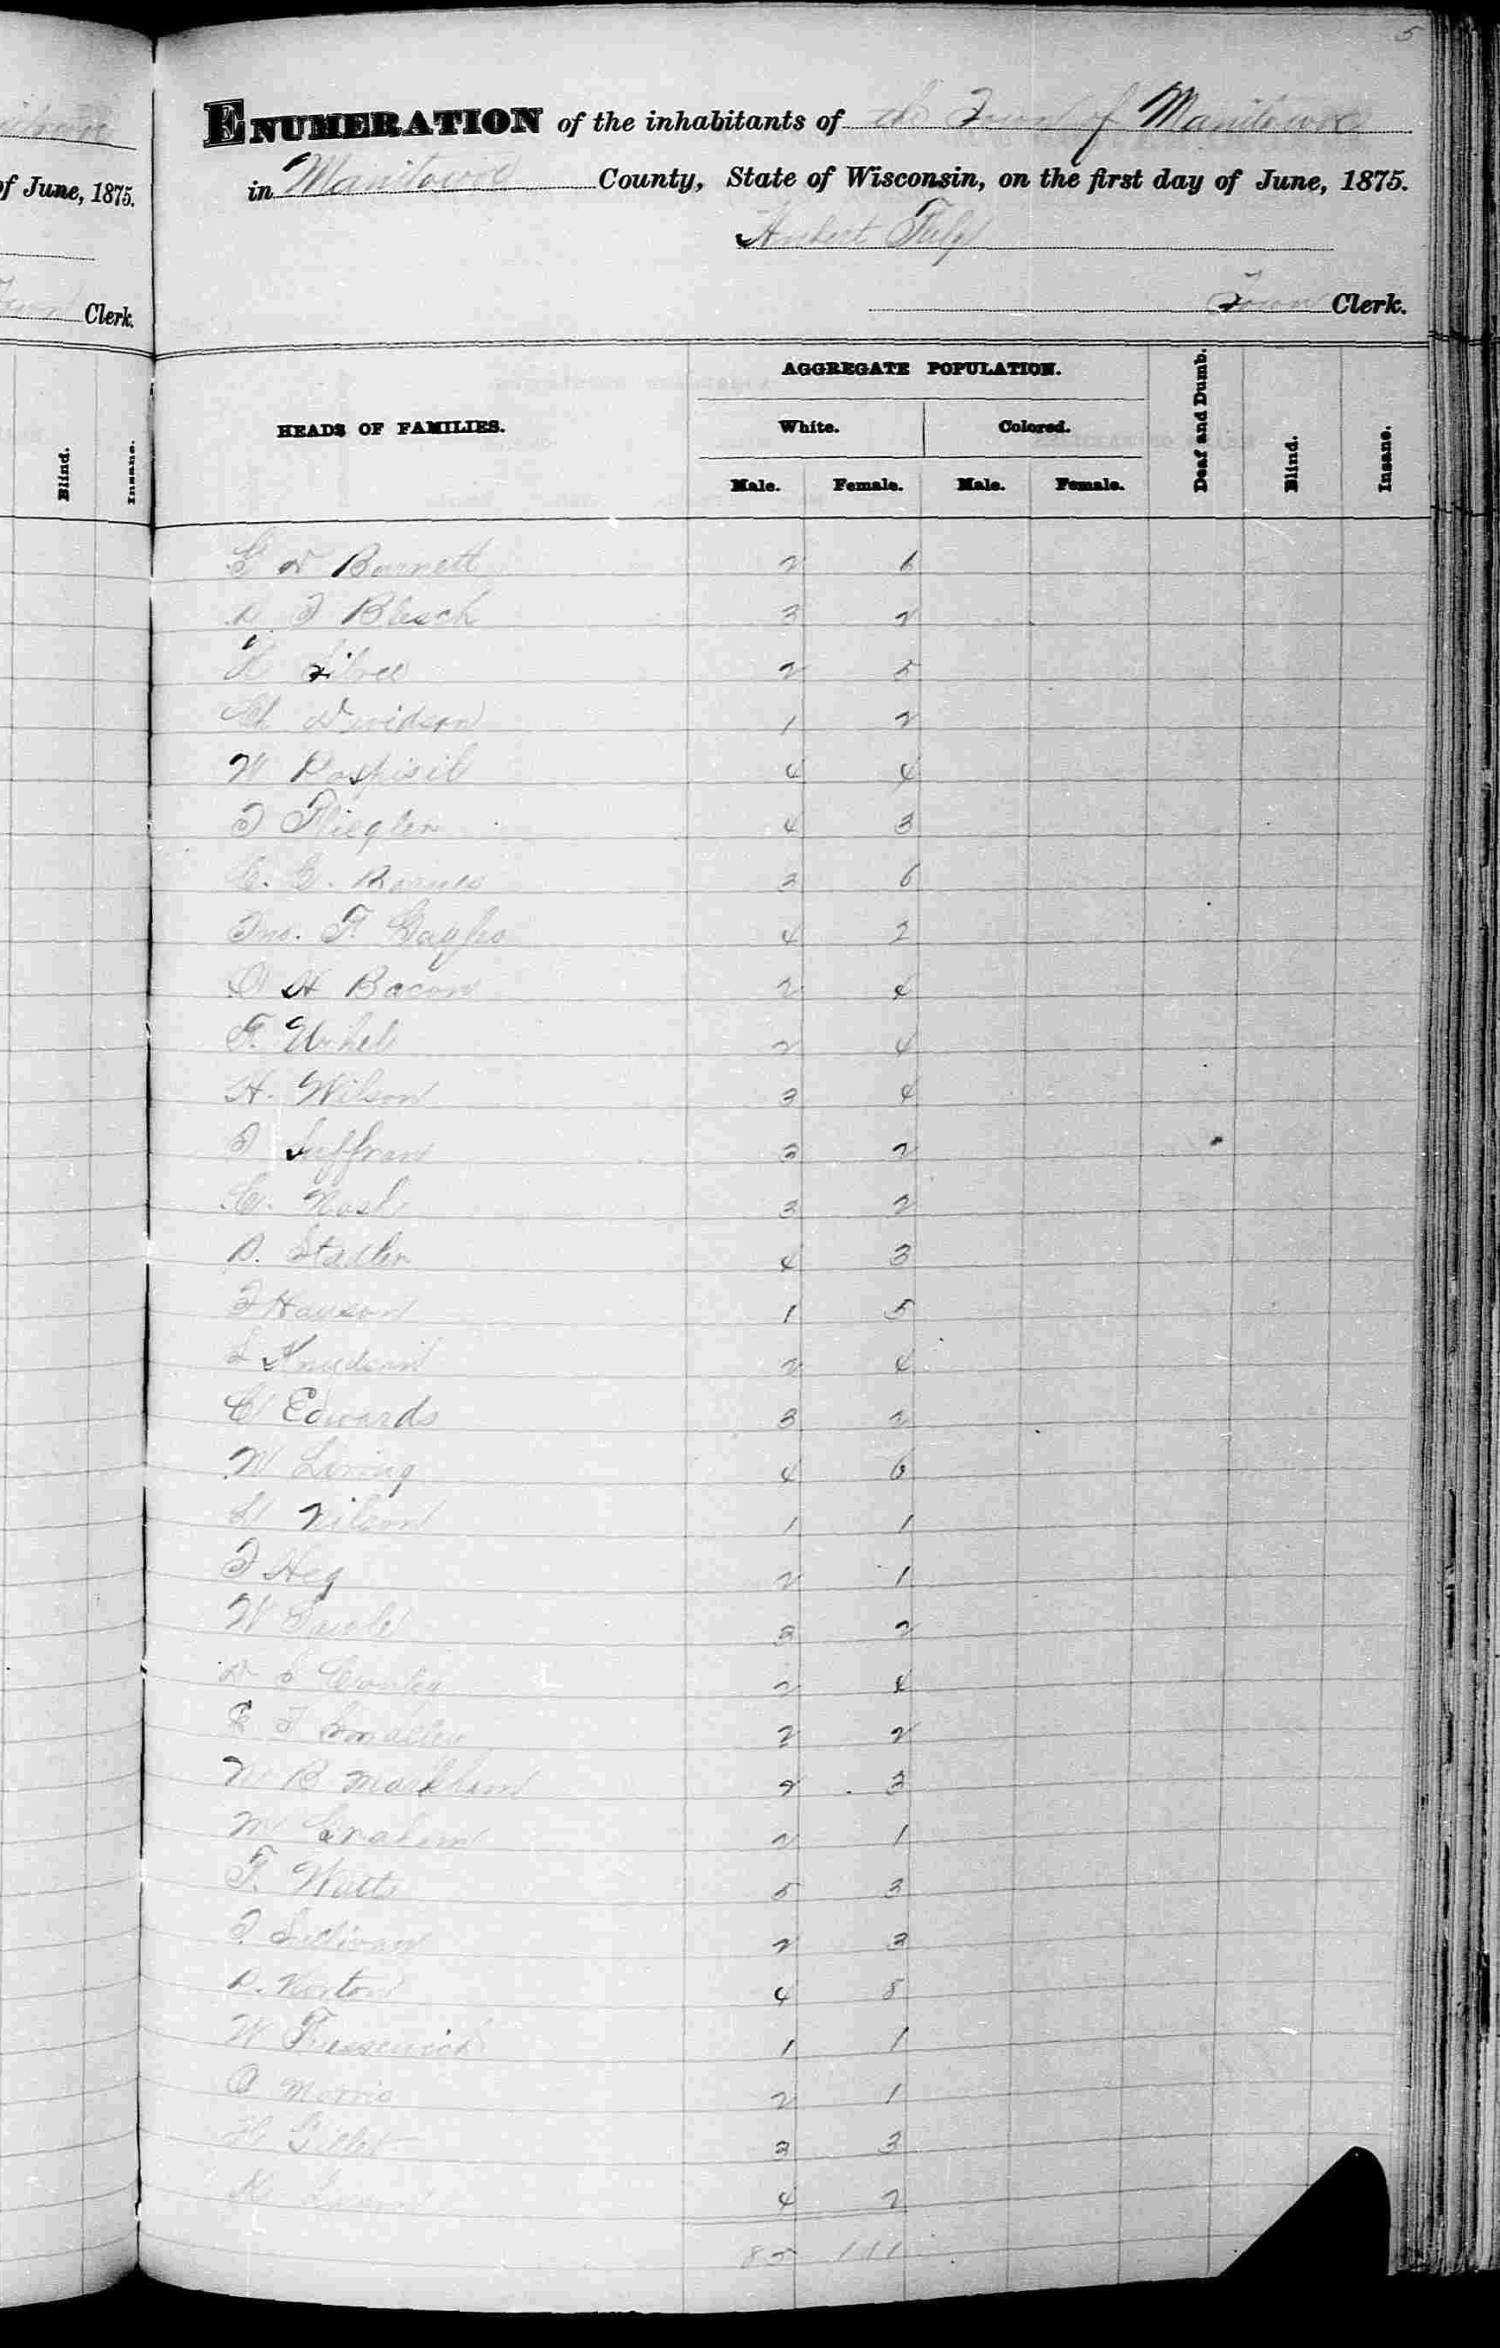 5
ENUMERATION of the inhabitants of the Town of Manitowoc
in Manitowoc County, State of Wisconsin, on the first day of June, 1875.
of June, 1875.
Town Clerk.
Clerk.
AGGREGATE POPULATION.
HEADS OF FAMILIES.
White.
Colored.
Deaf and Dumb.
Blind.
Insane.
Blind.
Insane.
Male. Female. Male. Female.
G D Barnett 2 6
P J Blesch 3 2
2 5
Davidson 1 2
W Pospisil 4 4
4 3
C. G. Barnes 3 6
Jno. F. 4 2
O H Bacon 2 4
F. 2 4
H. Wilson 3 4
J Suffran 3 2
C. Nash 3 2
P. Stadler 4 3
J Hanson 1 5
L Knudson 2 4
C Edwards 3 2
W 4 6
Nilson 1 1
J Heg 2 1
W 3 2
2 4
J Smalley 2 2
W B Markham 2 3
Graham 2 1
F. Watts 5 3
J. Sullivan 2 3
P. Norton 4 8
W 1 1
O Morris 2 1
3 3
4 2
85 111